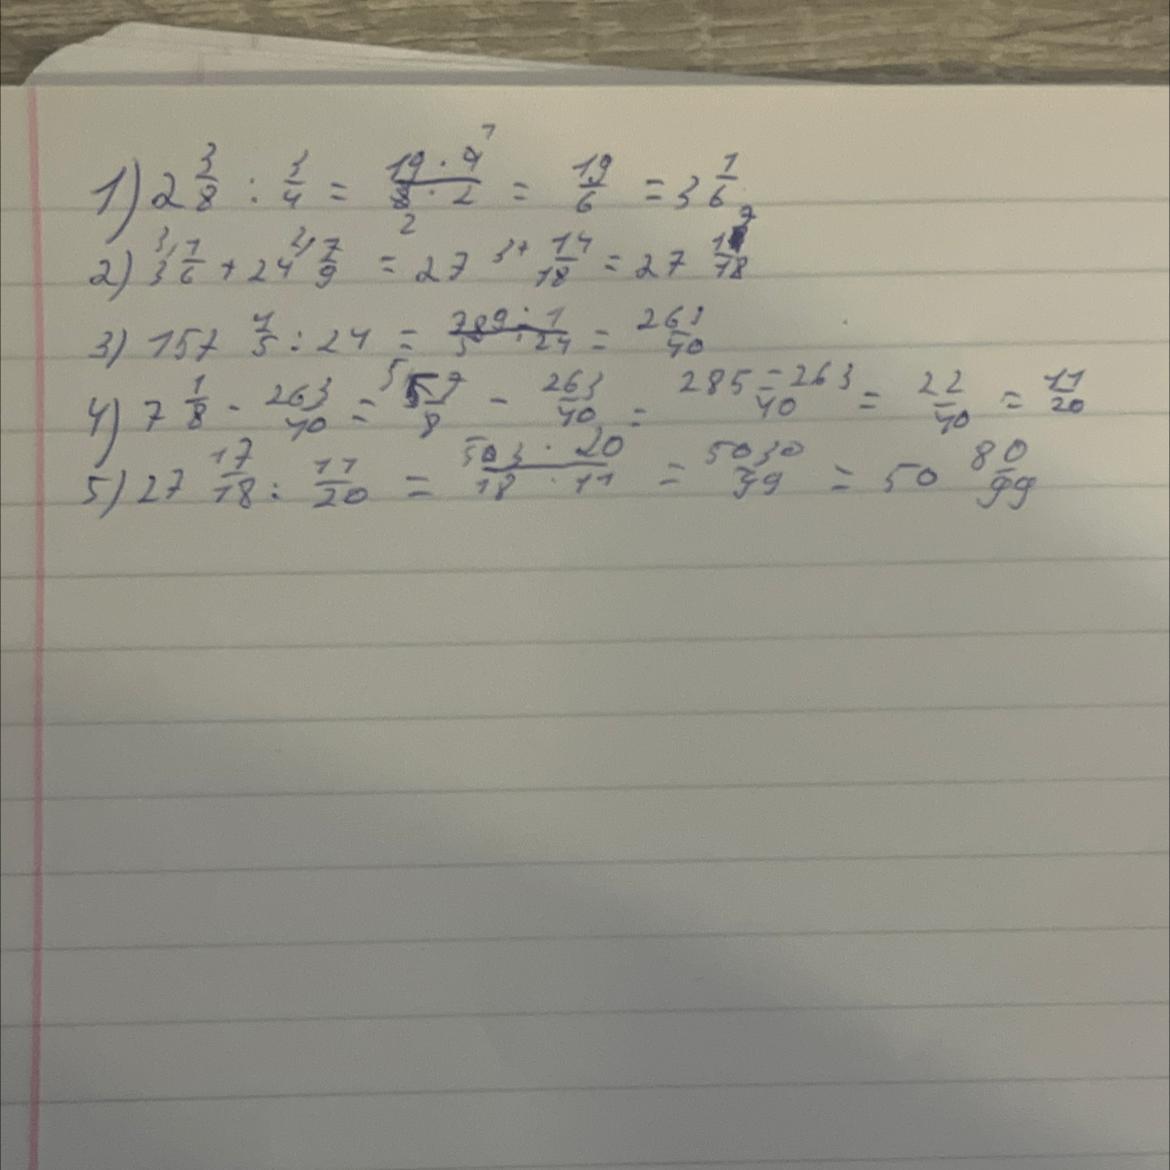 1) 2 3/8 : 3/4 = 19 · 4 / 8 · 2 = 19/6 = 3 1/6
2) 3 1/6 + 24 7/9 = 27 3+14/18 = 27 17/18
3) 157 4/5 : 24 = 789 · 1 / 5 · 24 = 263/40
4) 7 1/8 - 263/40 = 57/8 - 263/40 = 285 - 263 / 40 = 22/40 = 11/20
5) 27 17/18 : 11/20 = 503 · 20 / 18 · 11 = 5030/99 = 50 80/99